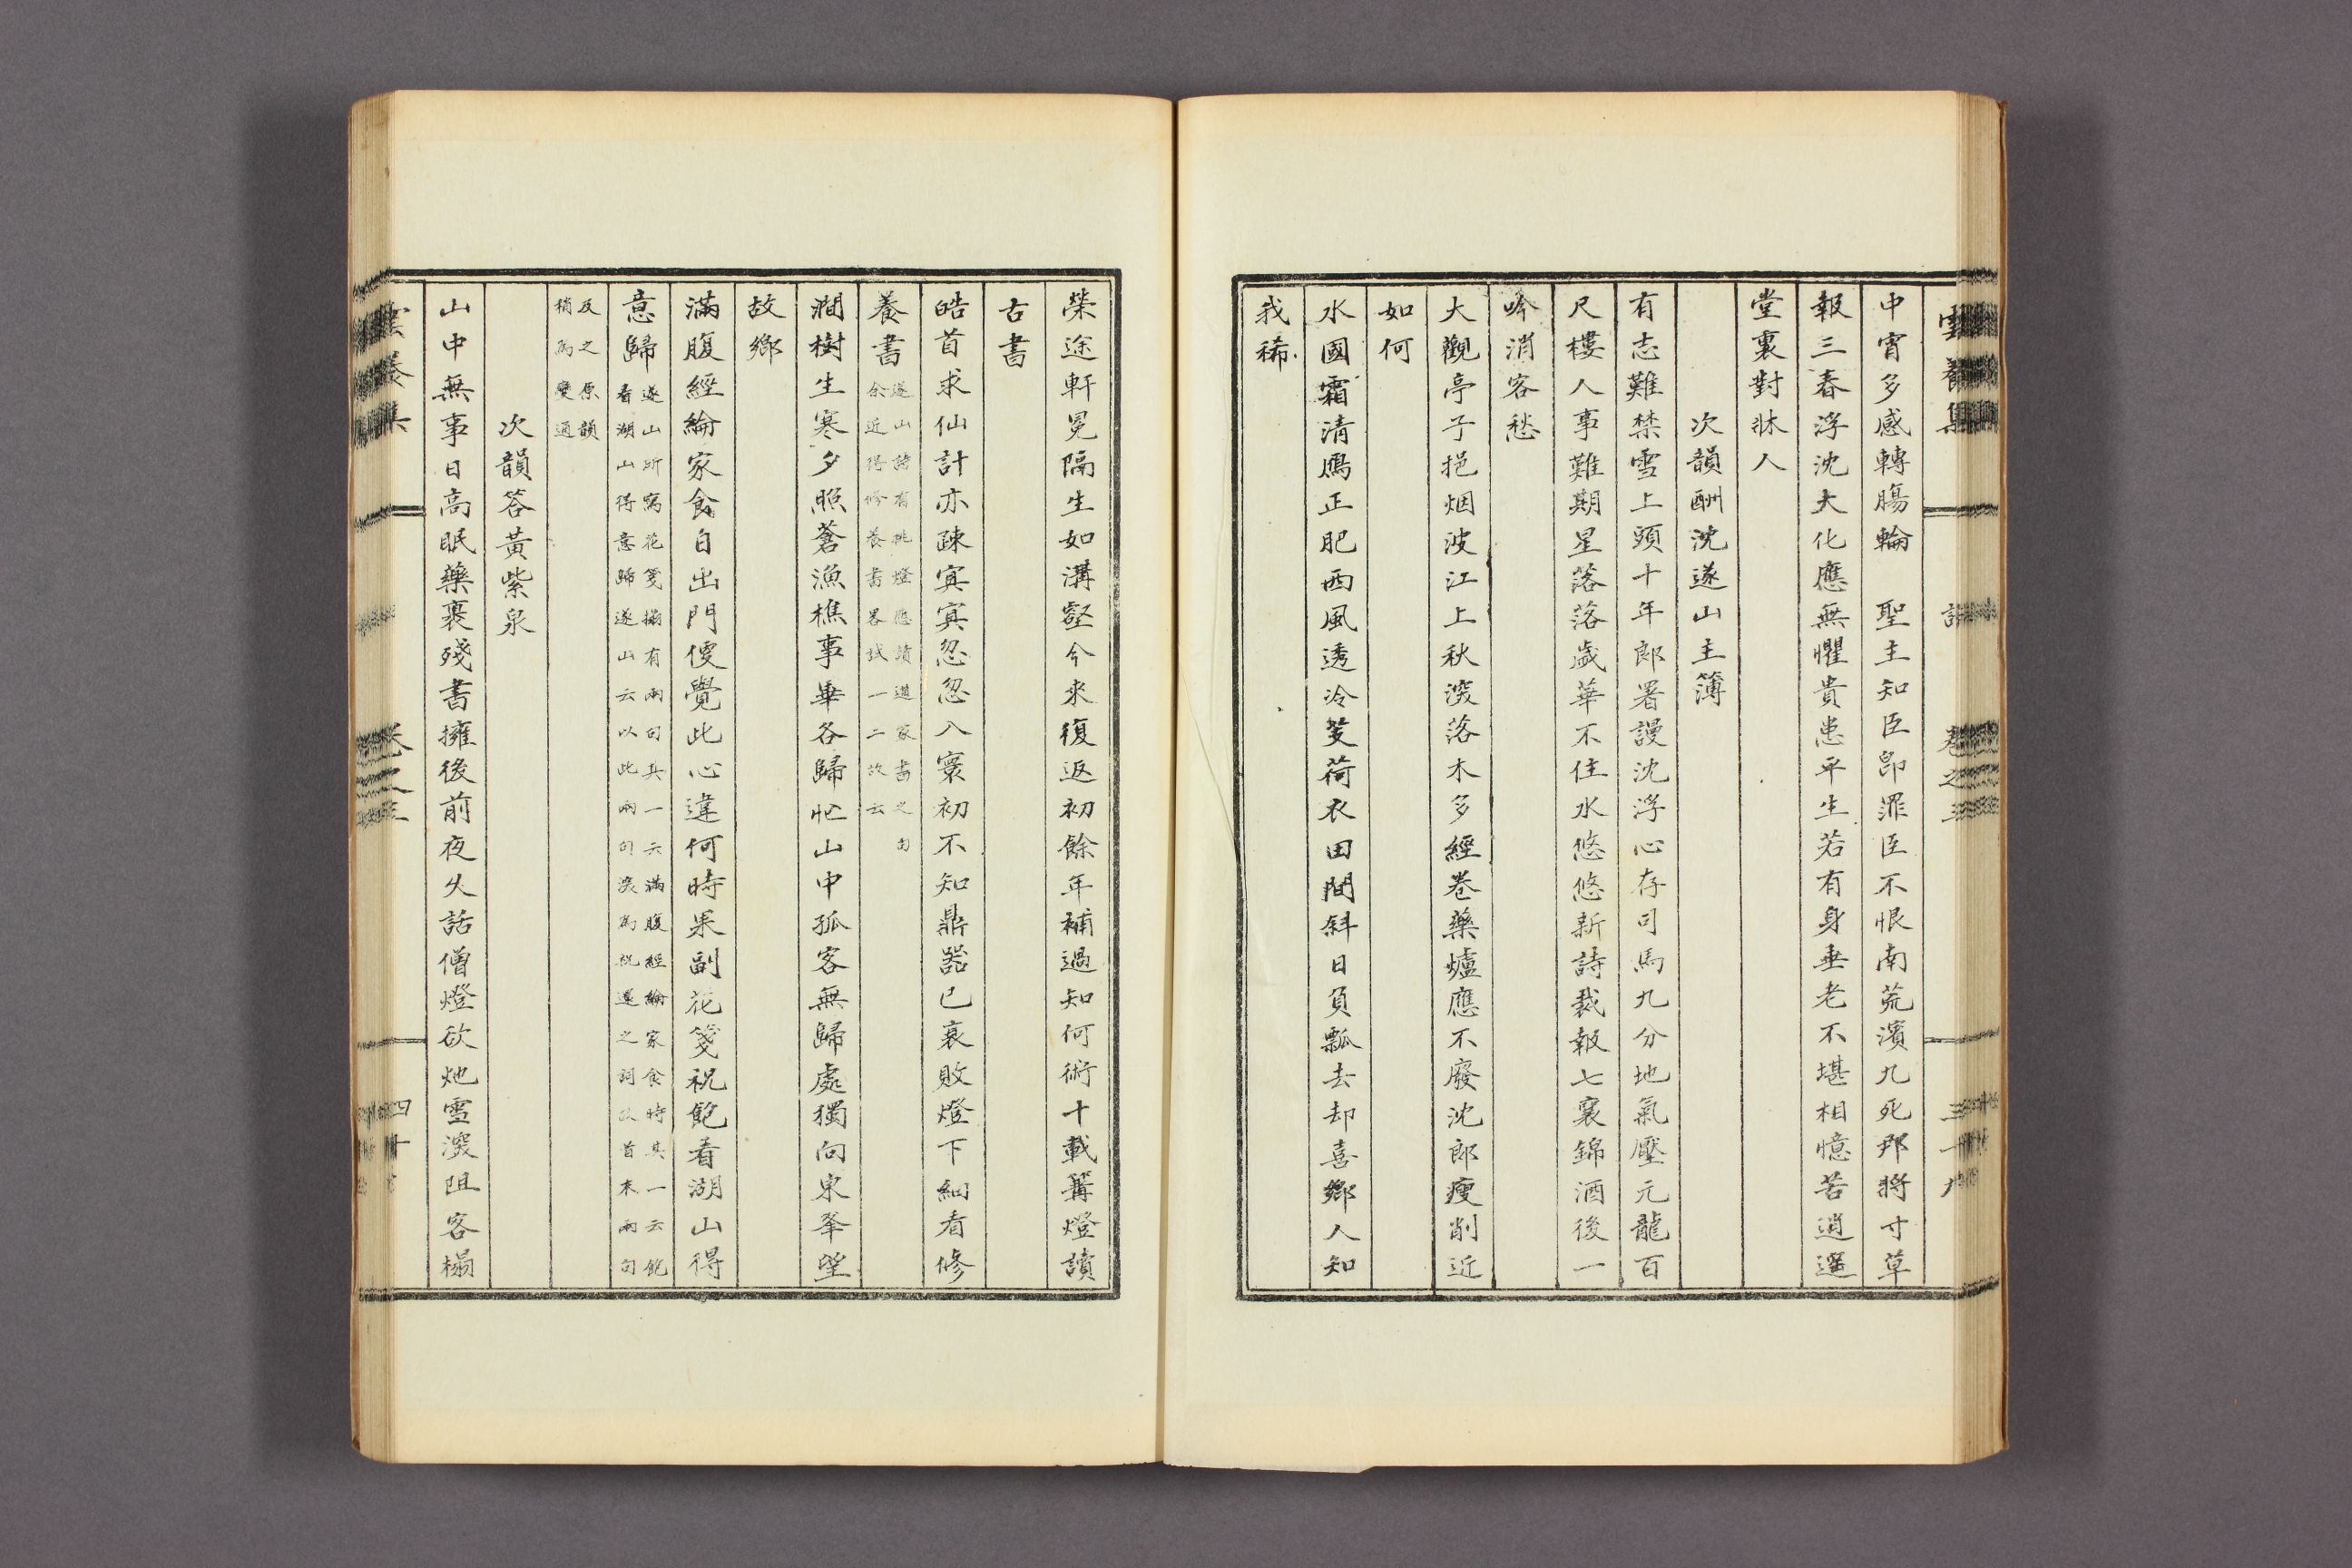 雲養集 詩 卷之三 三十九
中宵多感轉腸輪 聖主知臣卽罪臣不恨南荒濱九死那將寸草
報三春浮沈大化應無懼貴患平生若有身垂老不堪相憶苦逍遙
堂裏對牀人
次韻酬沈遂山主簿
有志難禁雪上頭十年郎署謾沈浮心存司馬九分地氣壓元龍百
尺樓人事難期星落落歲華不住水悠悠新詩裁報七襄錦酒後一
吟消客愁
大觀亭子挹烟波江上秋深落木多經卷藥爐應不廢沈郎瘦削近
如何
水國霜清鴈正肥西風透冷芰荷衣田間斜日負瓢去却喜鄉人知
我稀
榮途軒冕隔生如溝壑今來復返初餘年補過知何術十載篝燈讀
古書
皓首求仙計亦疎寅寅忽忽入寰初不知鼎器已衰敗燈下細看修
養書遂山詩有挑燈應讀道家書之句
余近得修養書畧試一二故云
澗樹生寒夕照蒼漁樵事畢各歸忙山中孤客無歸處獨向東峯望
故鄉
滿腹經綸家食自出門便覺此心違何時果副花箋祝飽看湖山得
意歸遂山所寫花箋搨有兩句其一云滿腹經綸家食時其一云飽
看湖山得意歸遂山云以此兩句深爲祝運之詞故首末兩句
反之原韻
稍爲變通
次韻答黃紫泉
山中無事日高眠藥裹殘書擁後前夜久話僧燈欲灺雪深阻客榻
雲養集 卷之三 四十